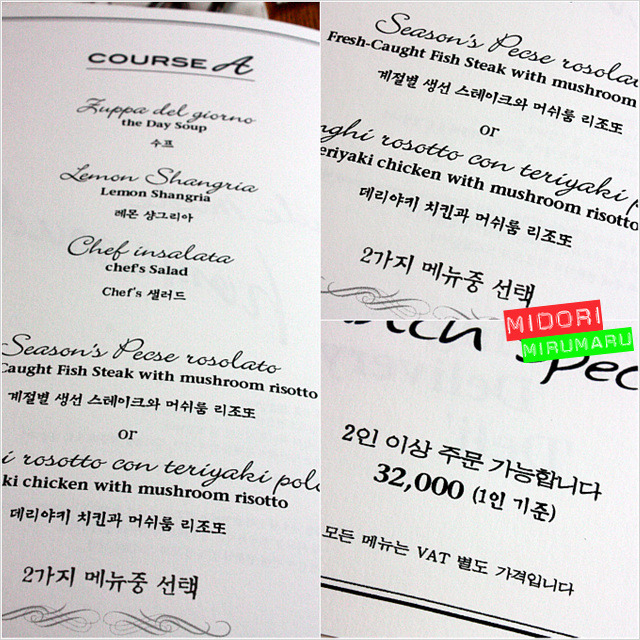 COURSE A
Zuppa del giorno
the Day Soup
수프
Lemon Shangria
Lemon Shangria
레몬 샹그리아
Chef insalata
chef's Salad
Chef's 샐러드
Season's Pecse rosolato
Caught Fish Steak with mushroom risotto
계절별 생선 스테이크와 머쉬룸 리조또
or
i rosotto con teriyaki pol
ki chicken with mushroom risotto
데리야키 치킨과 머쉬룸 리조또
2가지 메뉴중 선택
Season's Pecse rosola
Fresh-Caught Fish Steak with mushroom
계절별 생선 스테이크와 머쉬룸 리조또
or
nghi rosotto con teriyaki p
eriyaki chicken with mushroom risotto
데리야키 치킨과 머쉬룸 리조또
2가지 메뉴중 선택
MIDORI
MIRUMARU
2인 이상 주문 가능합니다
32,000 (1인 기준)
모든 메뉴는 VAT 별도 가격입니다